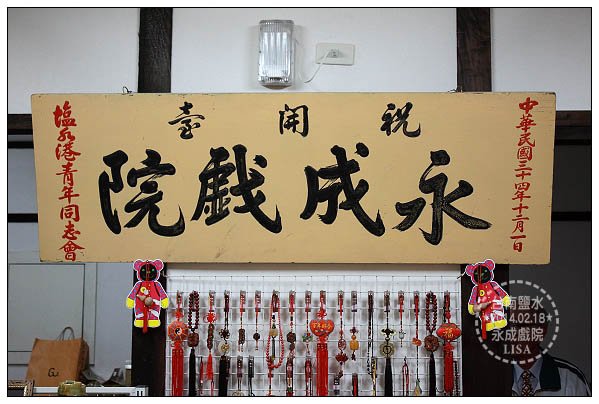 中華民國三十四年十二月一日
祝開臺
永成戯院
塩水港青年同志會
台南鹽水
2014.02.18
永成戲院
LISA